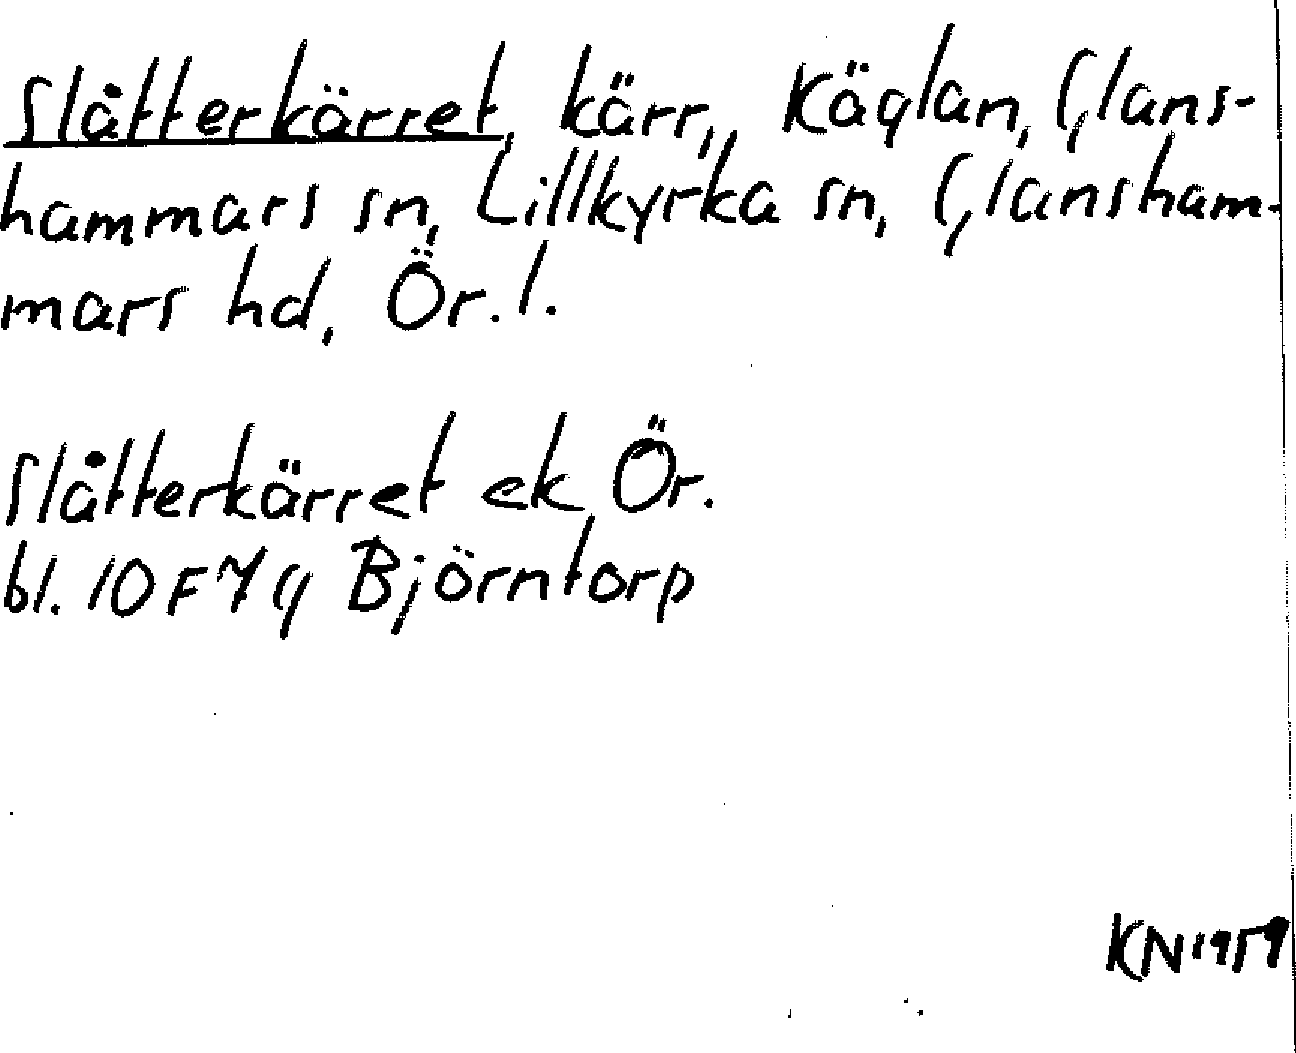 Slåtterkärret, kärr, Käglan, Glans-
hammars sn, Lillkyrka sn, Glansham-
mars hd, Ör. l.
Slåtterkärret ek Ör.
bl. 10F7g Björntorp
KN 1959